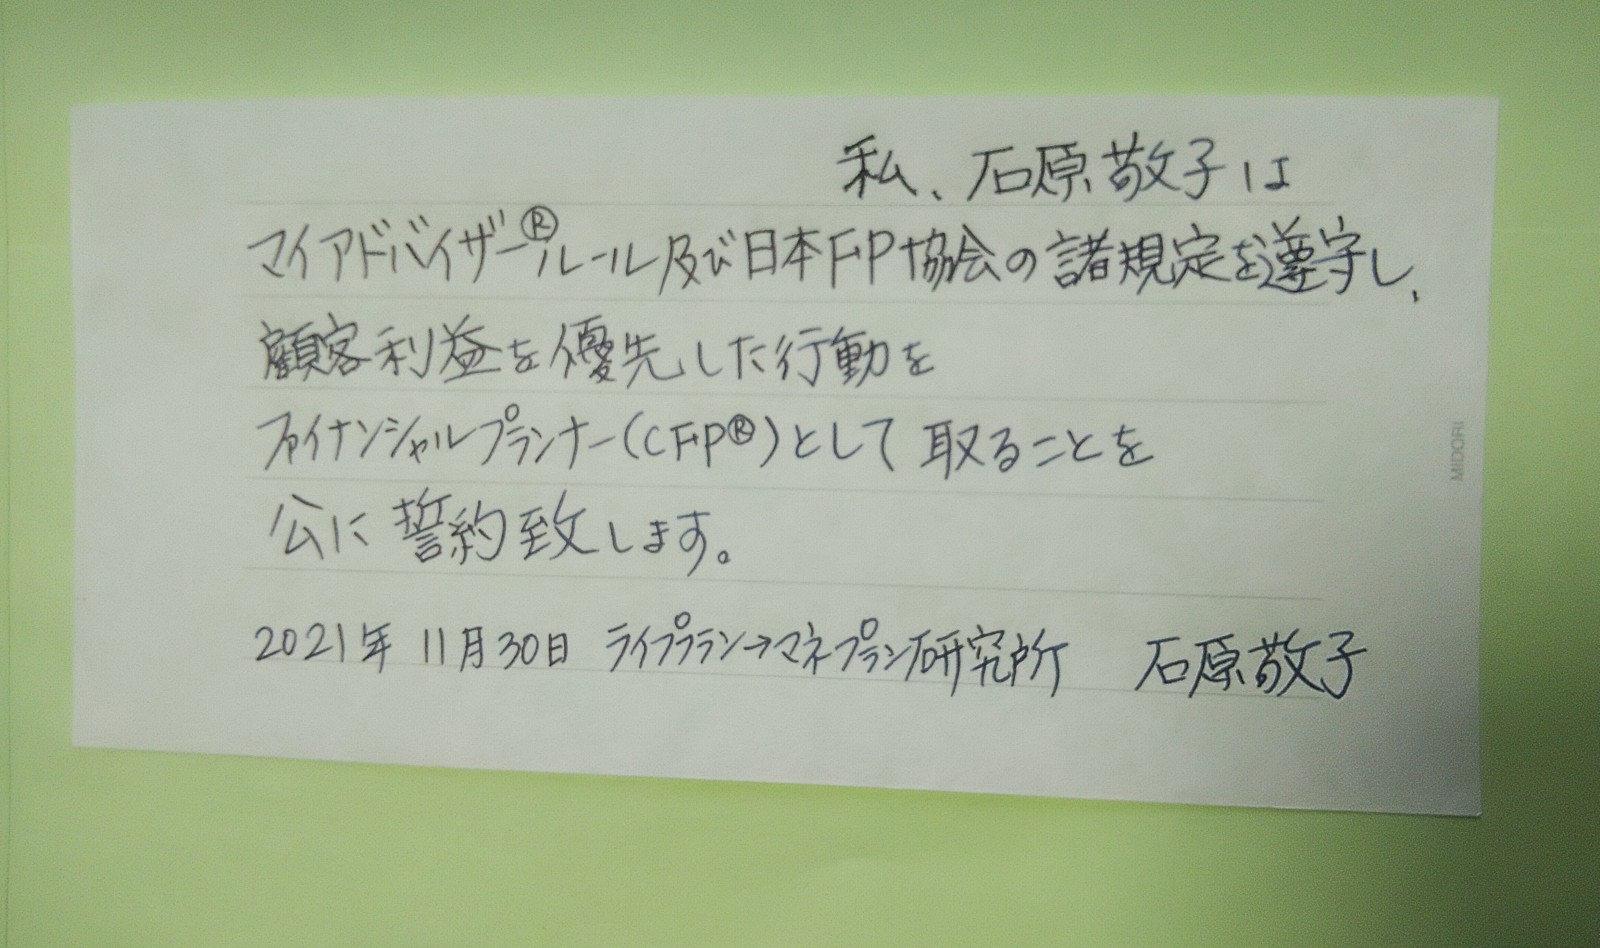 私、石原敬子は
マイアドバイザー®ルール及び日本FP協会の諸規定を遵守し、
顧客利益を優先した行動を
ファイナンシャルプランナー(CFP®)として取ることを
公に誓約致します。
2021年 11月30日 ライフプラン→マネープラン研究所 石原敬子
MIDORI